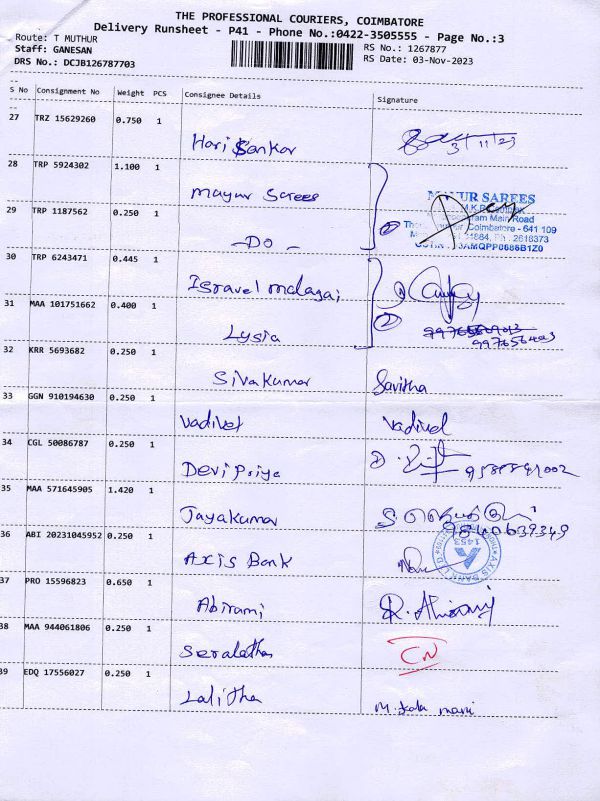 THE PROFESSIONAL COURIERS, COIMBATORE
Delivery Runsheet - P41 - Phone No.:0422-3505555 - Page No.:3
Route: T MUTHUR
RS No.: 1267877
Staff: GANESAN
RS Date: 03-Nov-2023
DRS No.: DCJB126787703
S No Consignment No Weight PCS Consignee Details Signature
27 TRZ 15629260 0.750 1
Hari Sankar 3/11/23
28 TRP 5924302 1.100 1
Mayur Sarees
MAYUR SAREES
29 TRP 1187562 0.250 1
Main Road
Coimbatore - 641 109
Ph : 2618373
- DO -
30 TRP 6243471 0.445 1
Isravel malagai
31 MAA 101751662 0.400 1
Lysia
32 KRR 5693682 0.250 1
Sivakumar Savitha
33 GGN 910194630 0.250 1
Vadivel Vadivel
34 CGL 50086787 0.250 1
Devi Priya
35 MAA 571645905 1.420 1
Jayakumar
9840639349
36 ABI 20231045952 0.250 1
Axis Bank
AXIS BANK LTD
1453
37 PRO 15596823 0.650 1
Abirami R. Abirami
38 MAA 944061806 0.250 1
CN
39 EDQ 17556027 0.250 1
Lalitha M. Kala mani